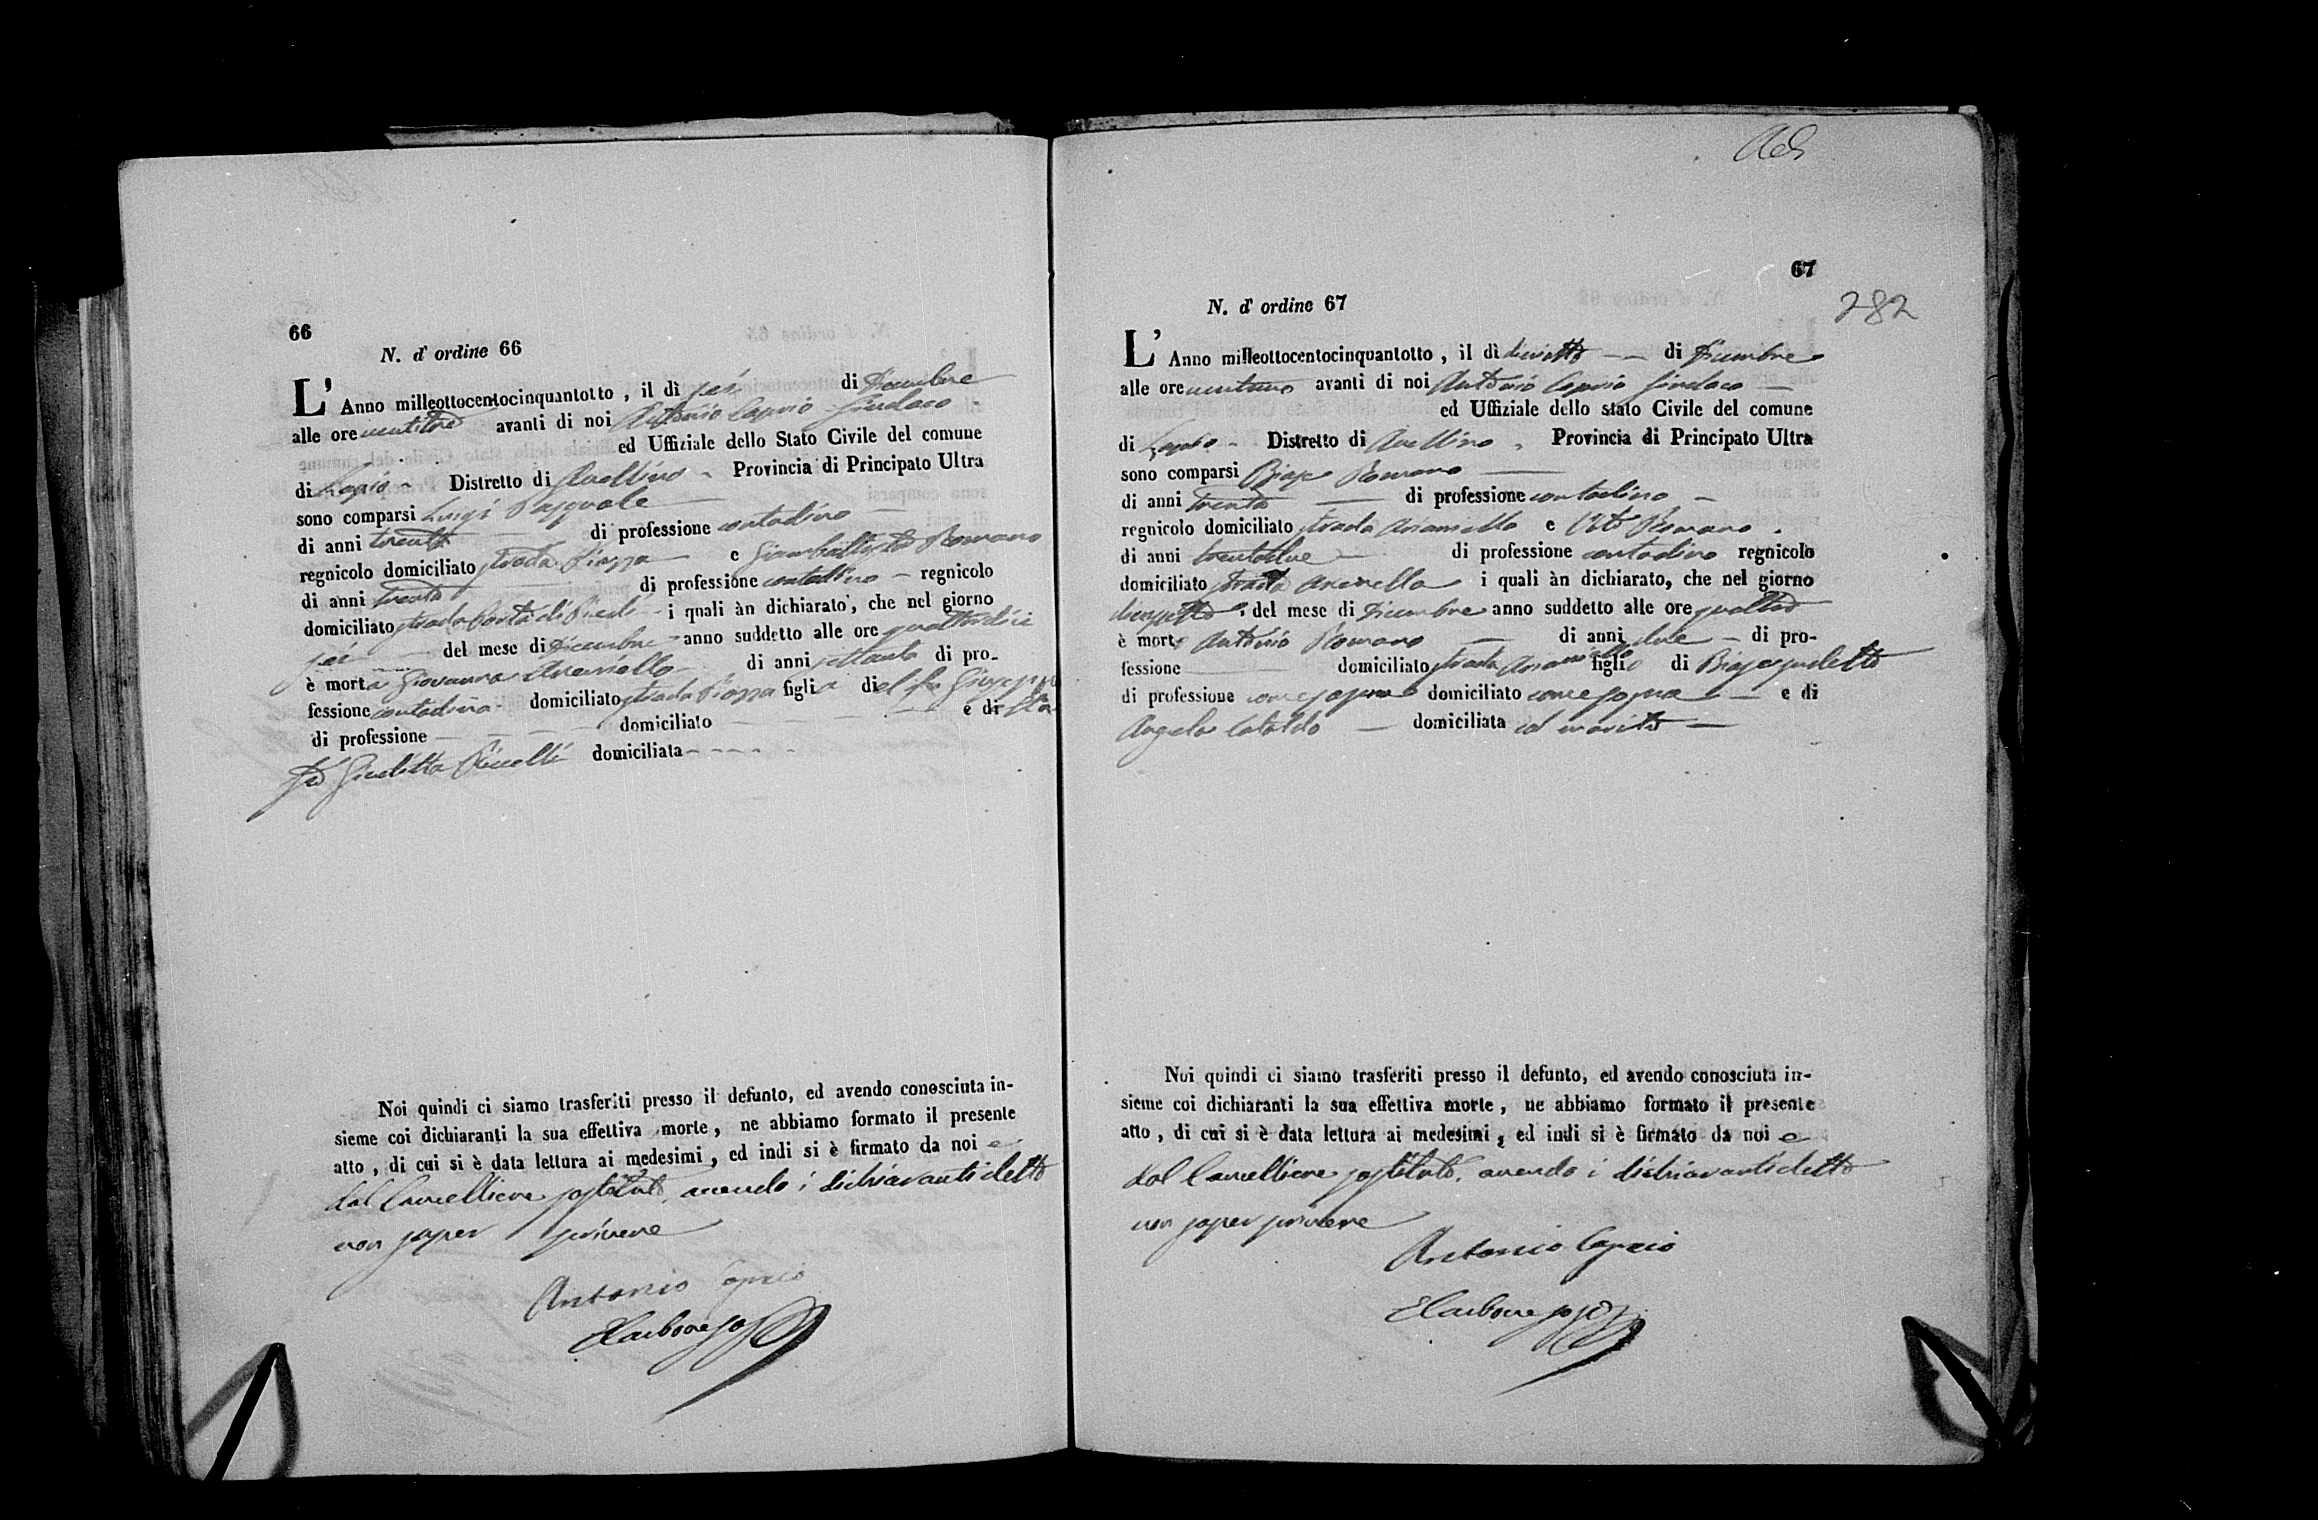 66
N. d' ordine 66
L' Anno milleottocentocinquantotto , il dì sei di Dicembre
alle ore ventitre avanti di noi Antonio Caprio Sindaco
ed Uffiziale dello Stato Civile del comune
di Lapio Distretto di Avellino Provincia di Principato Ultra
sono comparsi Luigi Pasquale
di anni trenta di professione contadino
regnicolo domiciliato strada Piazza e Giambattista Romano
di anni trenta di professione contadino regnicolo
domiciliato strada Porta di i quali àn dichiarato, che nel giorno
sei del mese di Dicembre anno suddetto alle ore quattordici
è morta Giovanna Aremolla di anni settanta di pro-
fessione contadina domiciliato strada Piazza figlia di del fu Giuseppe
di professione domiciliato e di
fu Giuditta domiciliata
Noi quindi ci siamo trasferiti presso il defunto, ed avendo conosciuta in-
sieme coi dichiaranti la sua effettiva morte, ne abbiamo formato il presente
atto , di cui si è data lettura ai medesimi , ed indi si è firmato da noi e
dal Cancelliere sostituto, avendo i dichiaranti detto
non saper scrivere
Antonio Caprio
ECarbone
67
282
N. d' ordine 67
L' Anno milleottocentocinquantotto , il dì diciotto di Dicembre
alle ore ventuno avanti di noi Antonio Caprio Sindaco
ed Uffiziale dello stato Civile del comune
di Lapio Distretto di Avellino Provincia di Principato Ultra
sono comparsi Biage Romano
di anni trenta di professione contadino
regnicolo domiciliato strada Arianiello e Vito Romano
di anni trentadue di professione contadino regnicolo
domiciliato strada i quali àn dichiarato, che nel giorno
diciotto del mese di Dicembre anno suddetto alle ore quattro
è morto Antonio Romano di anni due di pro-
fessione domiciliato strada Arianiello figlio di Biage sudetto
di professione come sopra domiciliato come sopra e di
Angela Cataldo domiciliata col marito
Noi quindi ci siamo trasferiti presso il defunto, ed avendo conosciuta in-
sieme coi dichiaranti la sua effettiva morte , ne abbiamo formato il presente
atto , di cui si è data lettura ai medesimi , ed indi si è firmato da noi e
dal Cancelliere sostituto, avendo i dichiaranti detto
non saper scrivere
Antonio Caprio
ECarbone